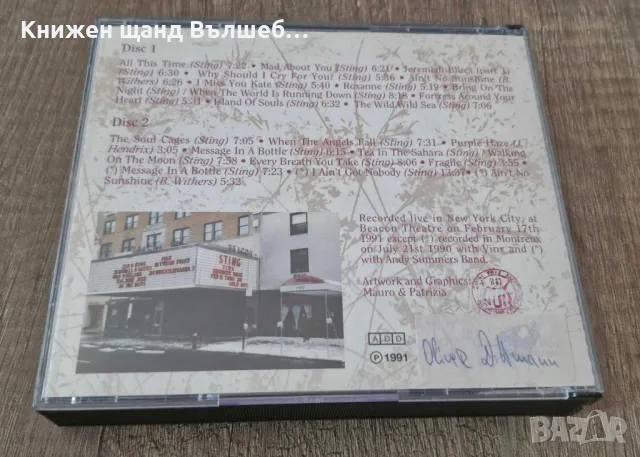 Книжен щанд Вълшеб...
Disc 1
All This Time (Sting) 7:22 • Mad About You (Sting) 6:21 • Jeremiah Blues (part 1)
(Sting) 6:30 • Why Should I Cry For You? (Sting) 5:36 • Ain't No Sunshine (B.
Withers) 6:26 • I Miss You Kate (Sting) 5:40 • Roxanne (Sting) 5:19 • Bring On The
Night / When The World Is Running Down (Sting) 8:16 • Fortress Around Your
Heart (Sting) 5:11 • Island Of Souls (Sting) 6:32 • The Wild Wild Sea (Sting) 7:06
Disc 2
The Soul Cages (Sting) 7:05 • When The Angels Fall (Sting) 7:31 • Purple Haze (J.
Hendrix) 3:05 • Message In A Bottle (Sting) 6:15 • Tea In The Sahara / Walking
On The Moon (Sting) 7:58 • Every Breath You Take (Sting) 8:06 • Fragile (Sting) 3:55
(*) Message In A Bottle (Sting) 7:23 • (*) I Ain't Got Nobody (Sting) • (*) Ain't No
Sunshine (B. Withers) 5:32
STING
Recorded live in New York City, at
Beacon Theatre on February 17th
1991 except (*) recorded in Montreux
on July 21st 1990 with Vinx and (*)
with Andy Summers Band.
Artwork and Graphics:
Mauro & Patrizia
ADD
℗ 1991
bazar